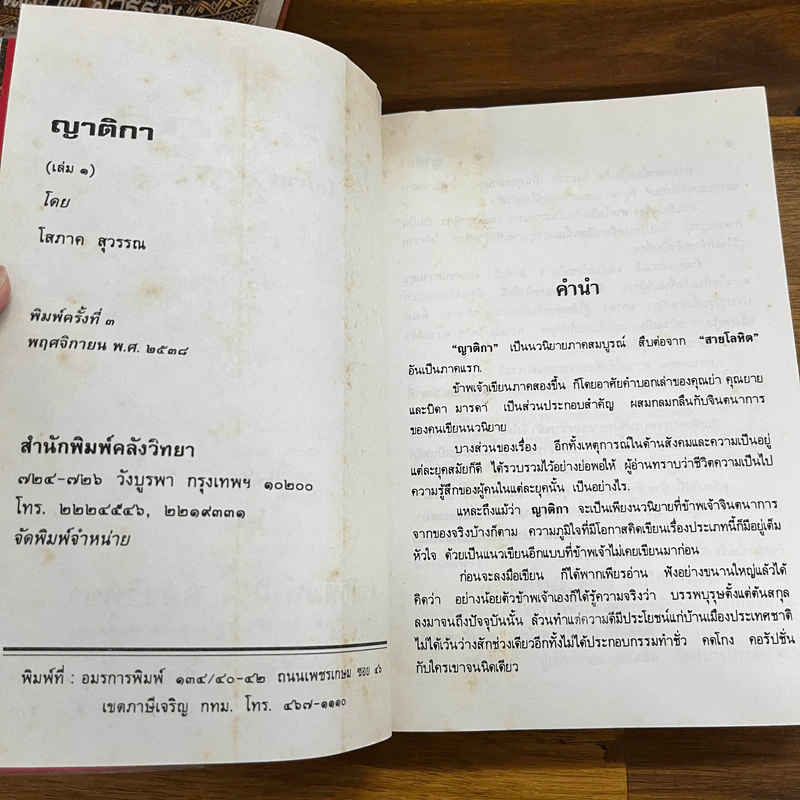 ญาติกา
(เล่ม ๑)
โดย
โสภาค สุวรรณ
พิมพ์ครั้งที่ ๓
พฤศจิกายน พ.ศ. ๒๕๓๘
สำนักพิมพ์คลังวิทยา
๗๒๔-๗๒๖ วังบูรพา กรุงเทพฯ ๑๐๒๐๐
โทร. ๒๒๒๔๕๔๖, ๒๒๑๙๓๓๑
จัดพิมพ์จำหน่าย
พิมพ์ที่ : อมรการพิมพ์ ๑๓๔/๔๐-๔๒ ถนนเพชรเกษม ซอย ๔๖
เขตภาษีเจริญ กทม. โทร. ๔๖๗-๑๑๑๐
คำนำ
“ญาติกา” เป็นนวนิยายภาคสมบูรณ์ สืบต่อจาก “สายโลหิต”
อันเป็นภาคแรก.
ข้าพเจ้าเขียนภาคสองขึ้น ก็โดยอาศัยคำบอกเล่าของคุณย่า คุณยาย
และบิดา มารดา เป็นส่วนประกอบสำคัญ ผสมกลมกลืนกับจินตนาการ
ของคนเขียนนวนิยาย
บางส่วนของเรื่อง อีกทั้งเหตุการณ์ในด้านสังคมและความเป็นอยู่
แต่ละยุคสมัยก็ดี ได้รวบรวมไว้อย่างย่อพอให้ ผู้อ่านทราบว่าชีวิตความเป็นไป
ความรู้สึกของผู้คนในแต่ละยุคนั้น เป็นอย่างไร.
แหละถึงแม้ว่า ญาติกา จะเป็นเพียงนวนิยายที่ข้าพเจ้าจินตนาการ
จากของจริงบ้างก็ตาม ความภูมิใจที่มีโอกาสคิดเขียนเรื่องประเภทนี้ก็มีอยู่เต็ม
หัวใจ ด้วยเป็นแนวเขียนอีกแบบที่ข้าพเจ้าไม่เคยเขียนมาก่อน
ก่อนจะลงมือเขียน ก็ได้พากเพียรอ่าน ฟังอย่างขนานใหญ่แล้วได้
คิดว่า อย่างน้อยตัวข้าพเจ้าเองก็ได้รู้ความจริงว่า บรรพบุรุษตั้งแต่ต้นสกุล
ลงมาจนถึงปัจจุบันนั้น ล้วนทำแต่ความดีมีประโยชน์แก่บ้านเมืองประเทศชาติ
ไม่ได้เว้นว่างสักช่วงเดียวอีกทั้งไม่ได้ประกอบกรรมทำชั่ว คดโกง คอรัปชั่น
กับใครเขาจนนิดเดียว